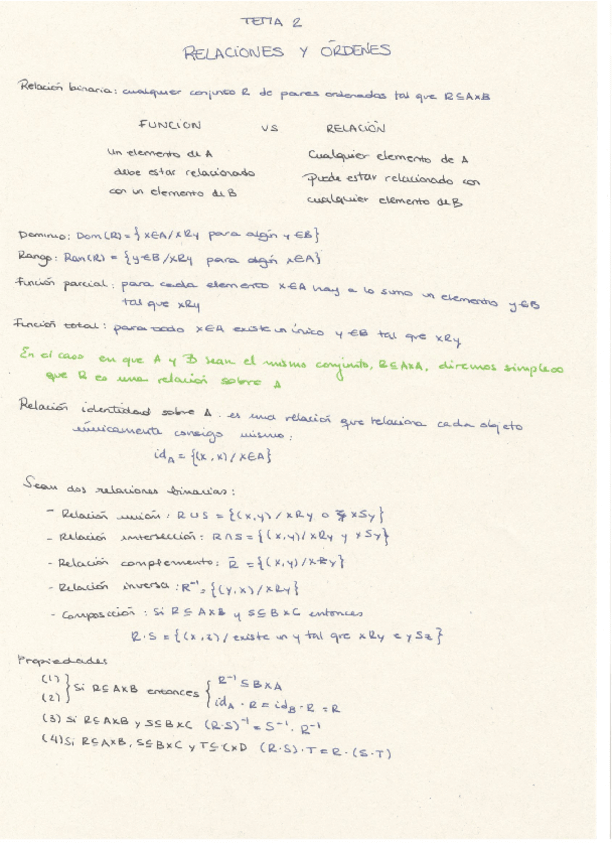 TEMA 2
RELACIONES Y ÓRDENES
Relación binaria: cualquier conjunto R de pares ordenados tal que R⊆AxB
FUNCIÓN VS RELACIÓN
Un elemento de A Cualquier elemento de A
debe estar relacionado puede estar relacionado con
con un elemento de B cualquier elemento de B
Dominio: Dom(R)={x∈A/xRy para algún y∈B}
Rango: Ran(R)={y∈B/xRy para algún x∈A}
Función parcial: para cada elemento x∈A hay a lo sumo un elemento y∈B
tal que xRy
Función total: para todo x∈A existe un único y∈B tal que xRy
En el caso en que A y B sean el mismo conjunto, R⊆AxA, diremos
que R es una relación sobre A
Relación identidad sobre A: es una relación que relaciona cada objeto
únicamente consigo mismo:
id_A={(x,x)/x∈A}
Sean dos relaciones binarias:
- Relación unión: R∪S={(x,y)/xRy o xSy}
- Relación intersección: R∩S={(x,y)/xRy y xSy}
- Relación complemento: R̄={(x,y)/xR̸y}
- Relación inversa: R⁻¹={(y,x)/xRy}
- Composición: Si R⊆AxB y S⊆BxC entonces
R·S={(x,z)/existe un y tal que xRy e ySz}
Propiedades
(1) } Si R⊆AxB entonces { R⁻¹⊆BxA
(2) id_A·R=id_B·R=R
(3) Si R⊆AxB y S⊆BxC (R·S)⁻¹=S⁻¹·R⁻¹
(4) Si R⊆AxB, S⊆BxC y T⊆CxD (R·S)·T=R·(S·T)